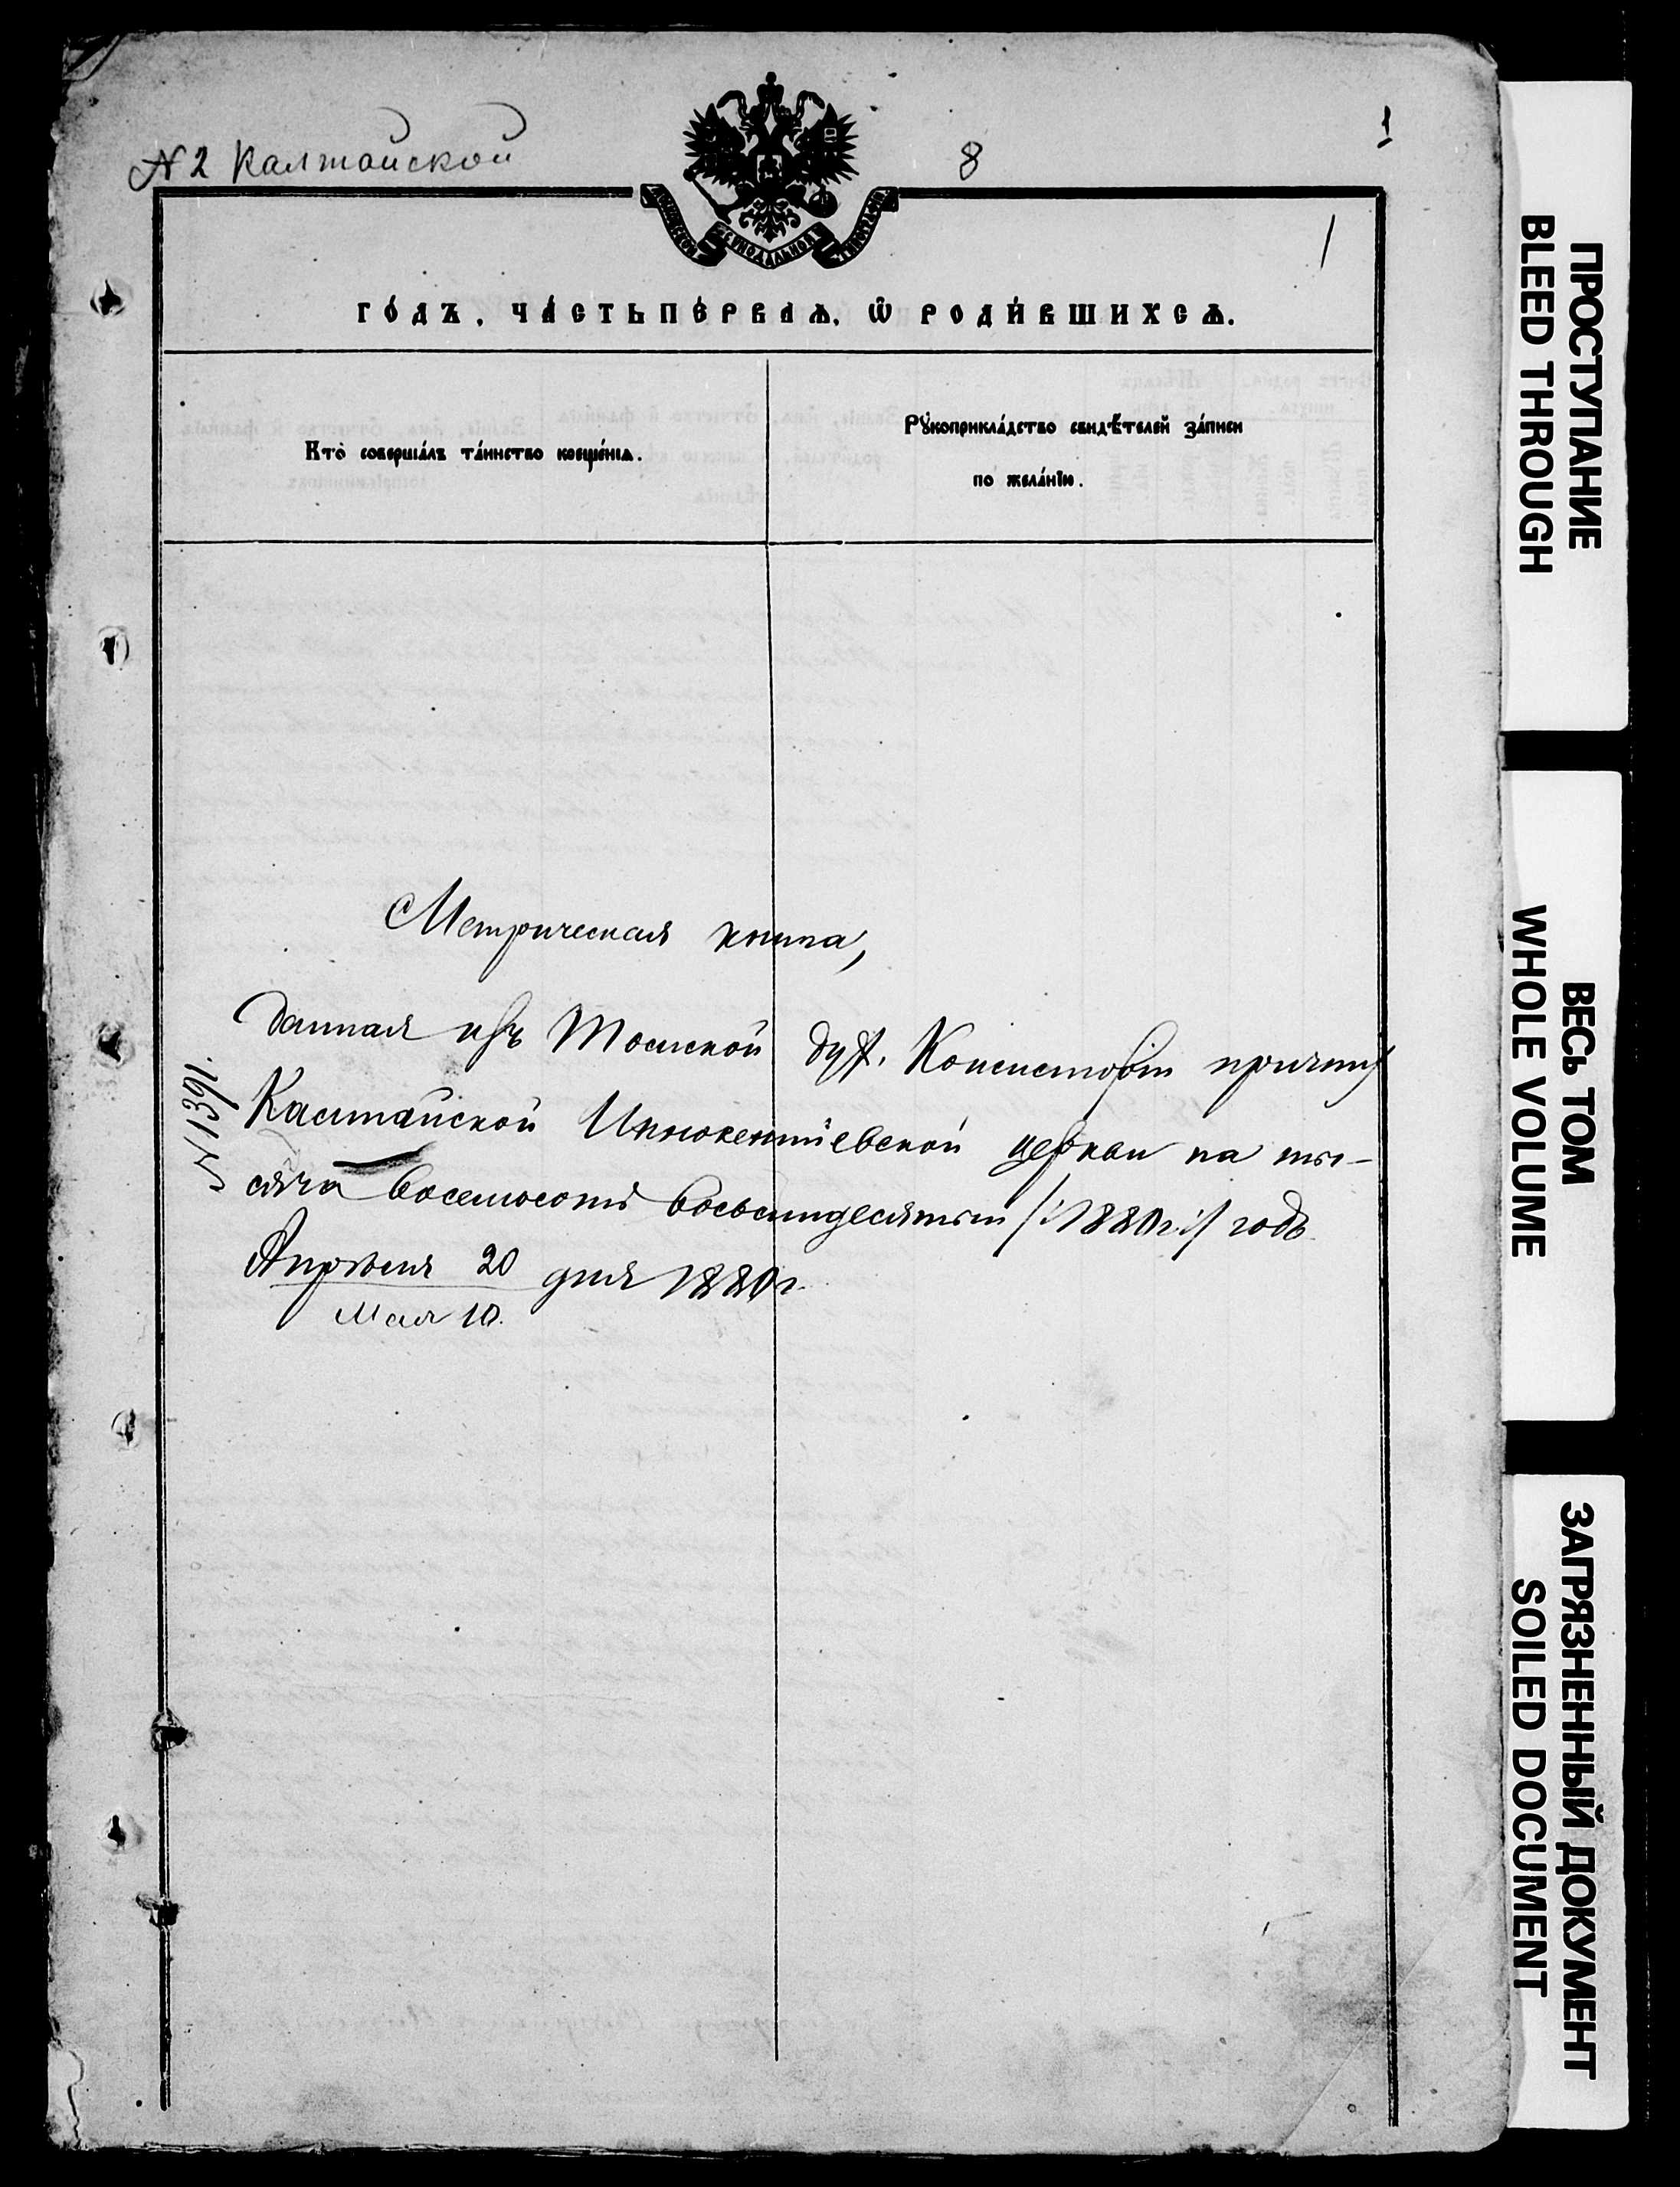 № 2 Калтайской
8
1
1
МОСКОВСКОЙ СѴНОДАЛЬНОЙ ТИПОГРАФІИ
ГО́ДЪ, ЧА́СТЬ ПЕ́РВАѦ, Ѡ҆ РОДИ́ВШИХСѦ.
Кто̀ соверша́лъ та́инство креще́нїѧ.
Рꙋкоприкла́дство свидѣ́телей за́писи
по жела́нїю.
Метрическая книга,
данная изъ Томской дух. Консисторіи причту
№ 1391.
Калтайской Иннокентіевской церкви на ты-
сяча восемьсотъ восьмидесятый /:1880г:/ годъ.
Апрѣля 20 дня 1880г.
Мая 10.
ПРОСТУПАНИЕ
BLEED THROUGH
ВЕСЬ ТОМ
WHOLE VOLUME
ЗАГРЯЗНЕННЫЙ ДОКУМЕНТ
SOILED DOCUMENT